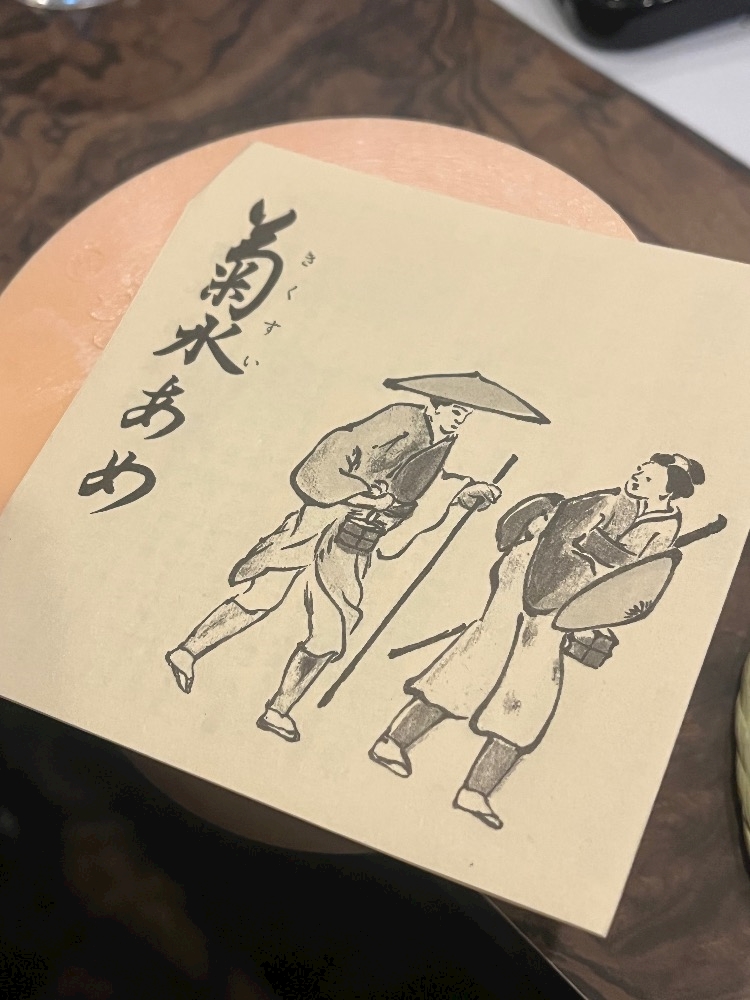 菊水あめ
きくすい